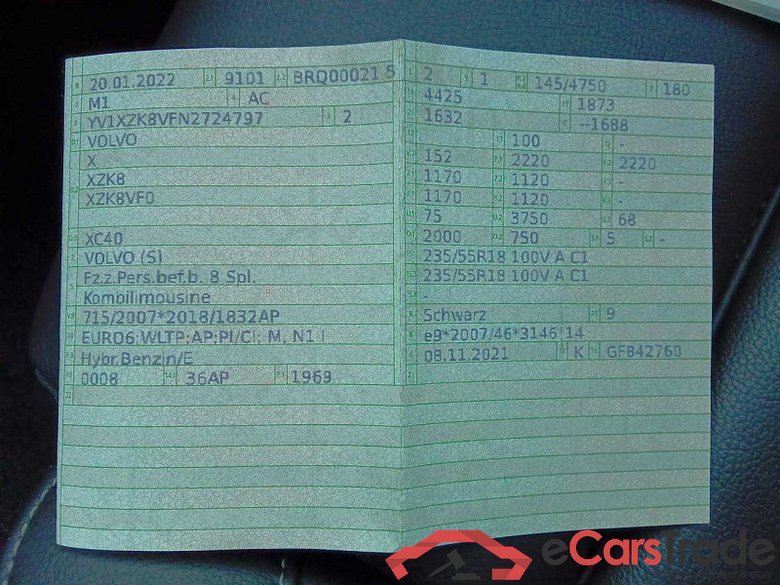 20.01.2022 9101 BRQ00021 5
M1 AC
YV1XZK8VFN2724797 2
VOLVO
X
XZK8
XZK8VF0
XC40
VOLVO (S)
Fz.z.Pers.bef.b. 8 Spl.
Kombilimousine
715/2007*2018/1832AP
EURO6;WLTP;AP;PI/CI; M, N1 I
Hybr.Benzin/E
0008 36AP 1969
2 1 145/4750 180
4425 1873
1632 --1688
100 -
152 2220 2220
1170 1120 -
1170 1120 -
75 3750 68
2000 750 5 -
235/55R18 100V A C1
235/55R18 100V A C1
-
Schwarz 9
e9*2007/46*3146*14
08.11.2021 K GF842760
eCarsTrade